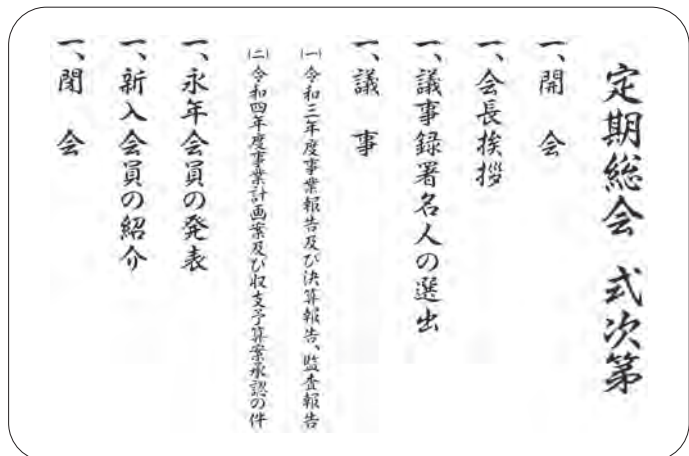 定期総会 式次第
一、開 会
一、会長挨拶
一、議事録署名人の選出
一、議 事
(一)令和三年度事業報告及び決算報告、監査報告
(二)令和四年度事業計画案及び収支予算案承認の件
一、永年会員の発表
一、新入会員の紹介
一、閉 会